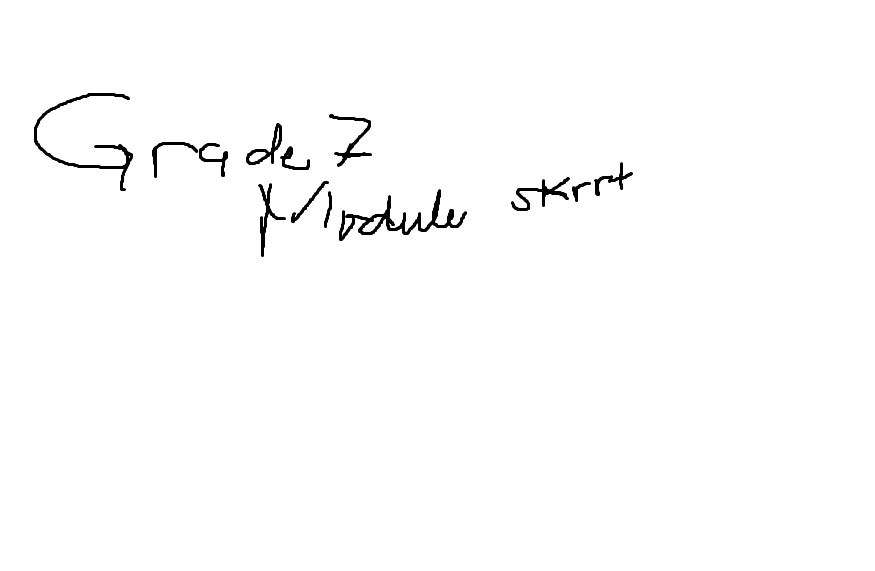 Grade 7
Module skrrt